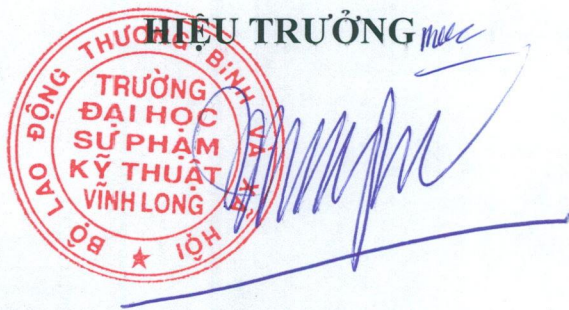 HIỆU TRƯỞNG
BỘ LAO ĐỘNG THƯƠNG BINH VÀ XÃ HỘI
TRƯỜNG
ĐẠI HỌC
SƯ PHẠM
KỸ THUẬT
VĨNH LONG